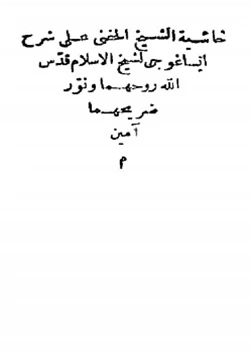 حاشية الشيخ الحفنى على شرح
ايساغوجى لشيخ الاسلام قدّس
الله روحهما ونوّر
ضريحهما
آمين
م